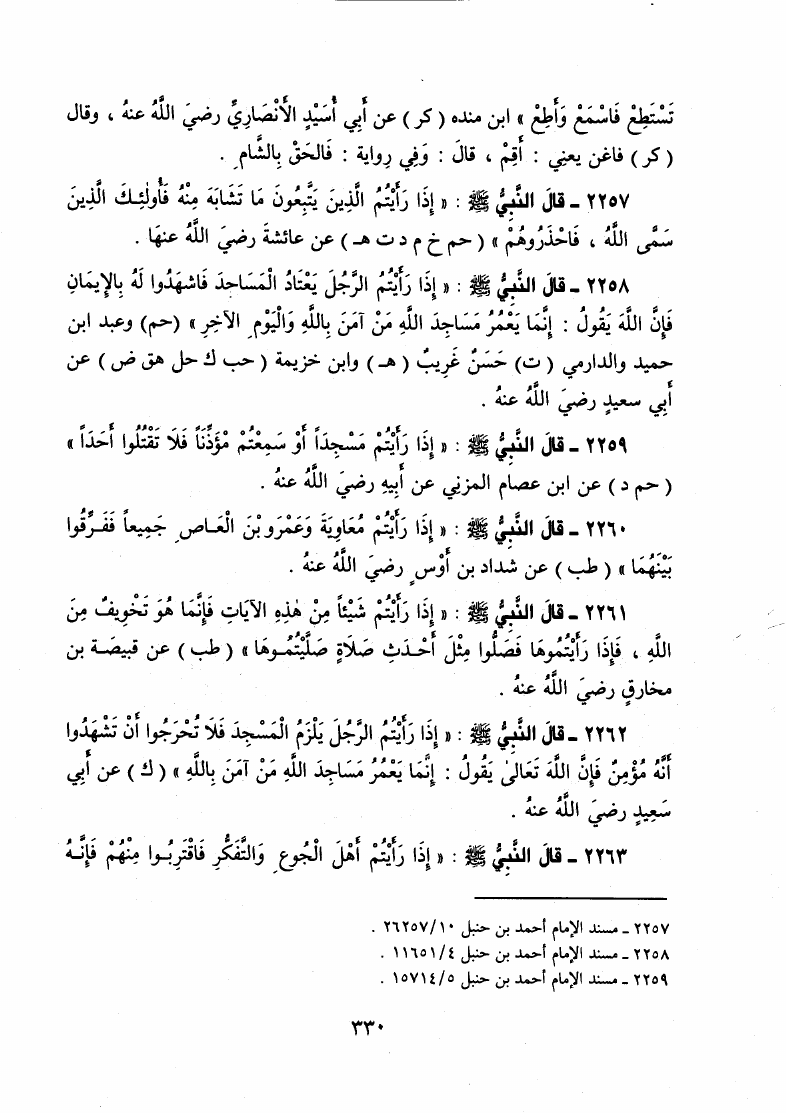 تَسْتَطِعْ فَاسْمَعْ وَأَطِعْ » ابن منده ( كر ) عن أَبِي أُسَيْدٍ الأَنْصَارِيِّ رضيَ اللَّهُ عنهُ ، وقال
( كر ) فاغن يعنِي : أَقِمْ ، قالَ : وَفِي رِواية : فَالحَقْ بِالشَّامِ .
٢٢٥٧ ـ قالَ النَّبِيُّ ﷺ : « إِذَا رَأَيْتُمُ الَّذِينَ يَتَّبِعُونَ مَا تَشَابَهَ مِنْهُ فَأُولٰئِكَ الَّذِينَ
سَمَّى اللَّهُ ، فَاحْذَرُوهُمْ » ( حم خ م د ت هـ ) عن عائشةَ رضيَ اللَّهُ عنهَا .
٢٢٥٨ ـ قالَ النَّبِيُّ ﷺ : « إِذَا رَأَيْتُمُ الرَّجُلَ يَعْتَادُ الْمَسَاجِدَ فَاشْهَدُوا لَهُ بِالإِيمَانِ
فَإِنَّ اللَّهَ يَقُولُ : إِنَّمَا يَعْمُرُ مَسَاجِدَ اللَّهِ مَنْ آمَنَ بِاللَّهِ وَالْيَوْمِ الآخِرِ » (حم) وعبد ابن
حميد والدارمي ( ت) حَسَنٌ غَرِيبٌ ( هـ ) وابن خزيمة ( حب ك حل هق ض ) عن
أَبِي سعيدٍ رضيَ اللَّهُ عنهُ .
٢٢٥٩ ـ قالَ النَّبِيُّ ﷺ : « إِذَا رَأَيْتُمْ مَسْجِداً أَوْ سَمِعْتُمْ مُؤَذِّناً فَلَا تَقْتُلُوا أَحَداً »
( حم د ) عن ابن عصام المزني عن أَبِيهِ رضيَ اللَّهُ عنهُ .
٢٢٦٠ ـ قالَ النَّبِيُّ ﷺ : « إِذَا رَأَيْتُمْ مُعَاوِيَةَ وَعَمْرَو بْنَ الْعَاصِ جَمِيعاً فَفَرِّقُوا
بَيْنَهُمَا » ( طب ) عن شداد بن أَوْسٍ رضيَ اللَّهُ عنهُ .
٢٢٦١ ـ قالَ النَّبِيُّ ﷺ : « إِذَا رَأَيْتُمْ شَيْئاً مِنْ هٰذِهِ الآيَاتِ فَإِنَّمَا هُوَ تَخْوِيفٌ مِنَ
اللَّهِ ، فَإِذَا رَأَيْتُمُوهَا فَصَلُّوا مِثْلَ أَحْدَثِ صَلَاةٍ صَلَّيْتُمُوهَا » ( طب ) عن قبيصَة بن
مخارقٍ رضيَ اللَّهُ عنهُ .
٢٢٦٢ ـ قالَ النَّبِيُّ ﷺ : « إِذَا رَأَيْتُمُ الرَّجُلَ يَلْزَمُ الْمَسْجِدَ فَلَا تُحْرَجُوا أَنْ تَشْهَدُوا
أَنَّهُ مُؤْمِنٌ فَإِنَّ اللَّهَ تَعَالىٰ يَقُولُ : إِنَّمَا يَعْمُرُ مَسَاجِدَ اللَّهِ مَنْ آمَنَ بِاللَّهِ » ( ك ) عن أَبِي
سَعِيدٍ رضيَ اللَّهُ عنهُ .
٢٢٦٣ ـ قالَ النَّبِيُّ ﷺ : « إِذَا رَأَيْتُمْ أَهْلَ الْجُوعِ وَالتَّفَكُّرِ فَاقْتَرِبُوا مِنْهُمْ فَإِنَّهُ
٢٢٥٧ ـ مسند الإمام أحمد بن حنبل ٢٦٢٥٧/١٠ .
٢٢٥٨ ـ مسند الإمام أحمد بن حنبل ١١٦٥١/٤ .
٢٢٥٩ ـ مسند الإمام أحمد بن حنبل ١٥٧١٤/٥ .
٣٣٠